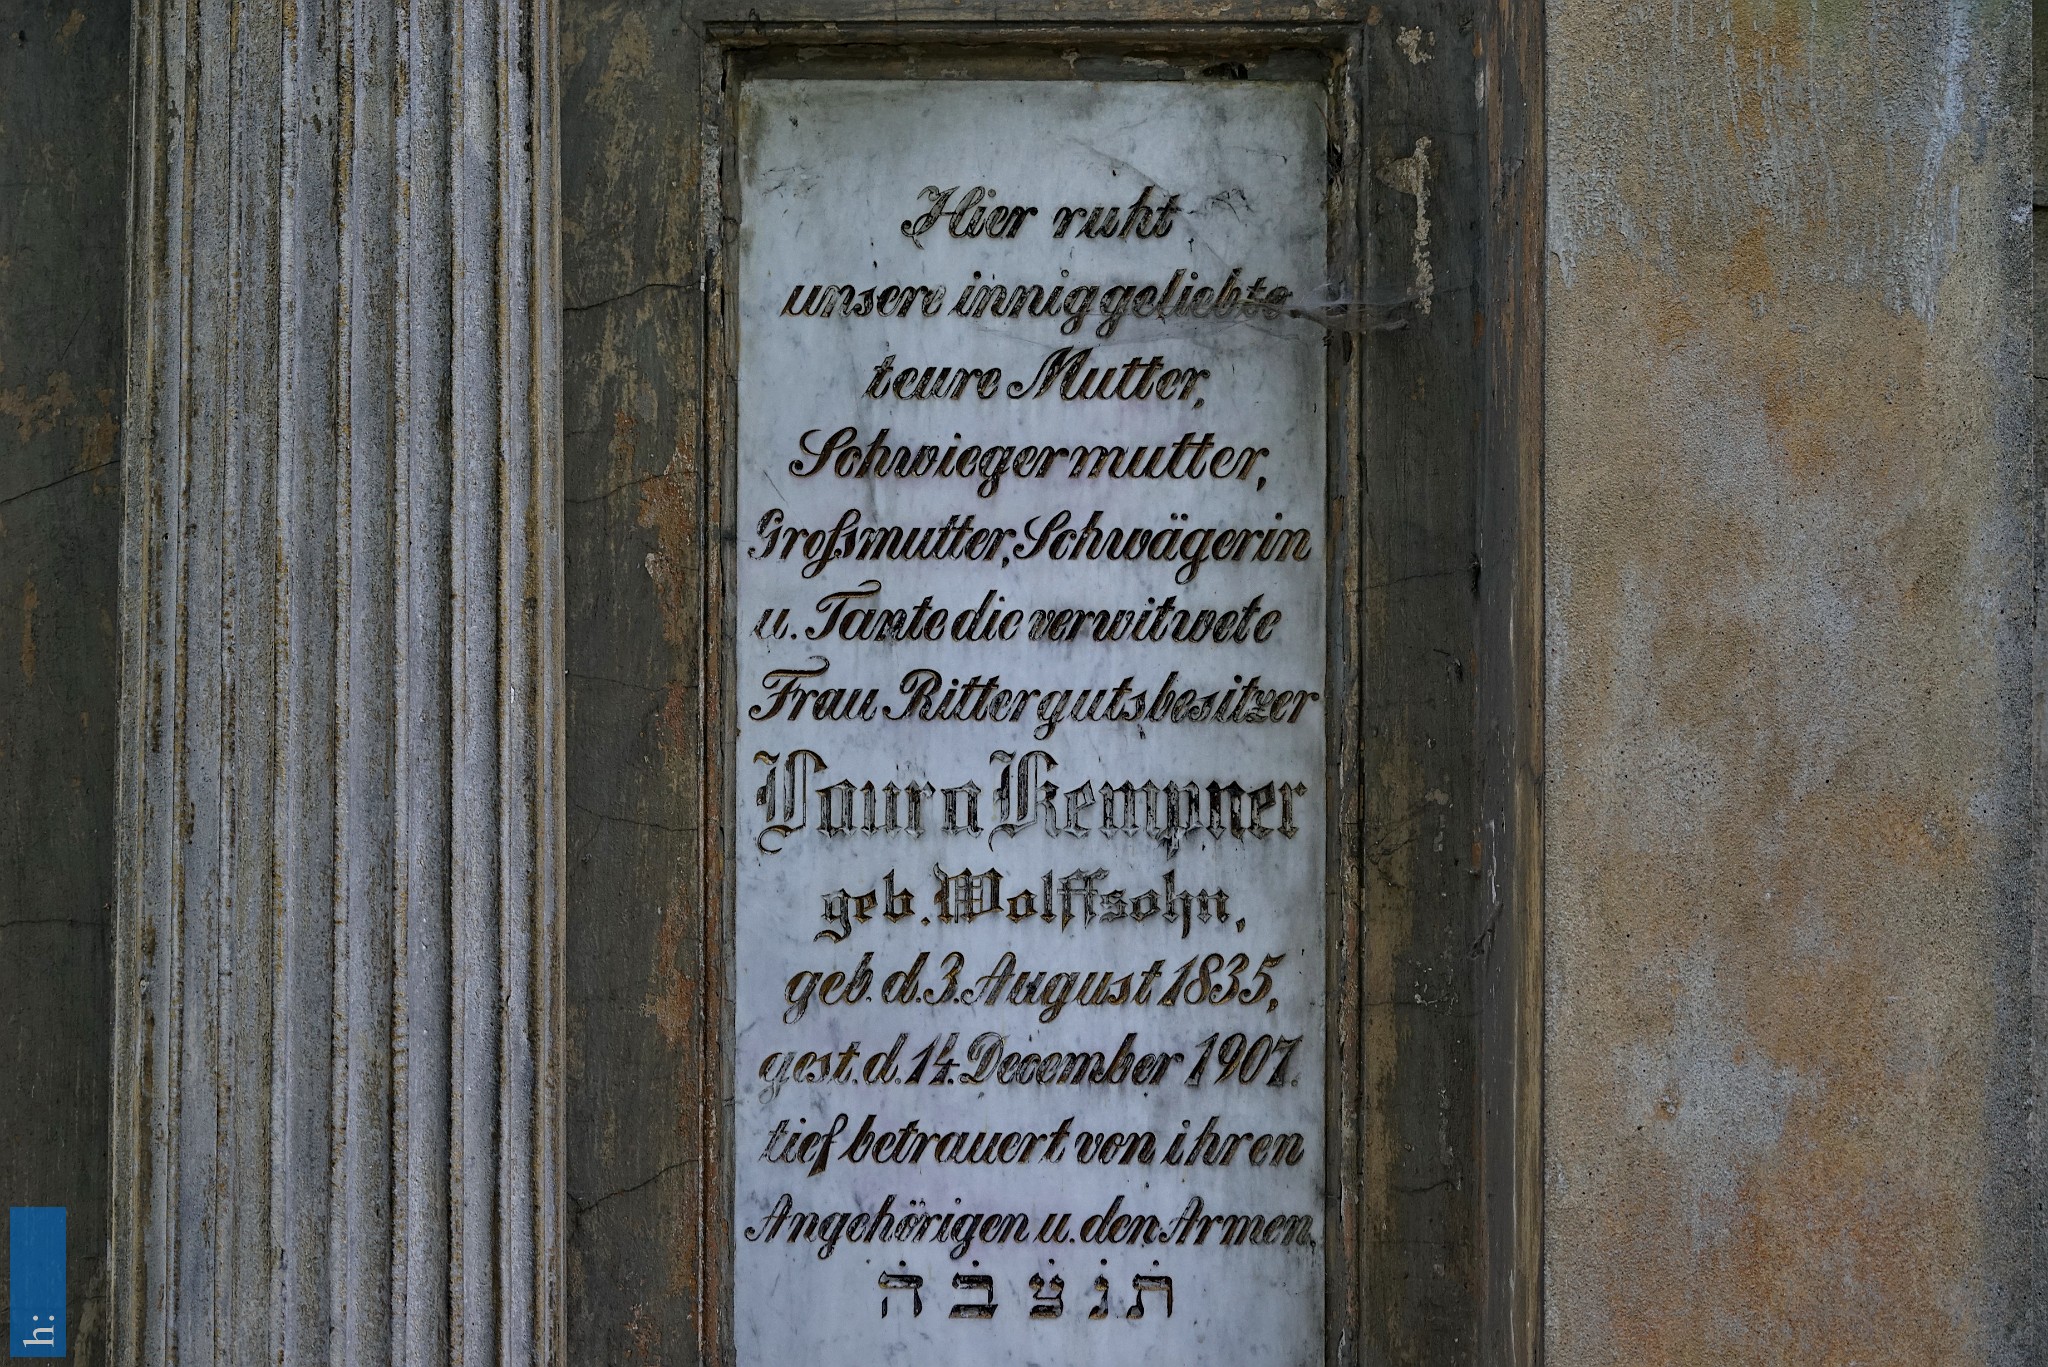 Hier ruht
unsere inniggeliebte
teure Mutter,
Schwiegermutter,
Großmutter, Schwägerin
u. Tante die verwitwete
Frau Rittergutsbesitzer
Laura Kempner
geb. Wolffsohn,
geb. d. 3. August 1835,
gest. d. 14. December 1907.
tief betrauert von ihren
Angehörigen u. den Armen.
ת נ צ ב ה
h: